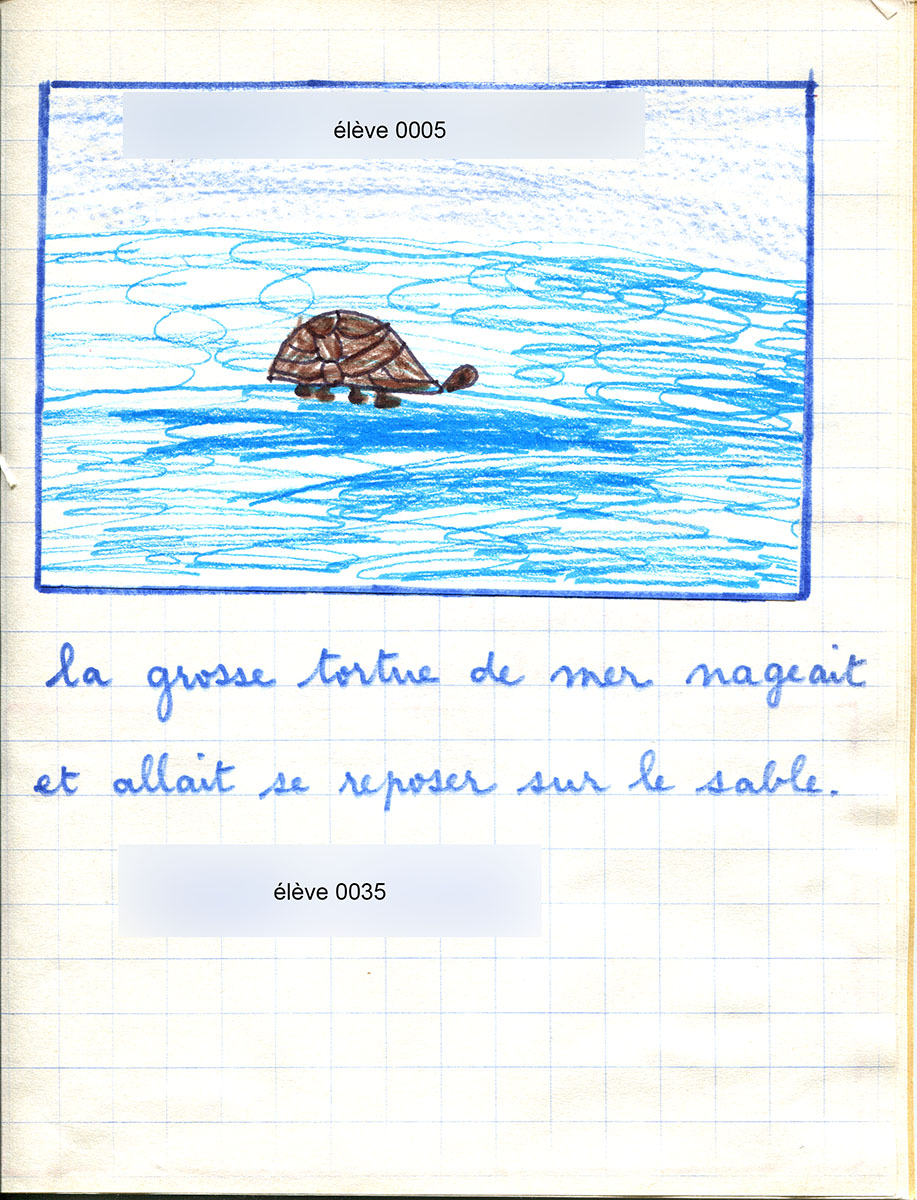 élève 0005
la grosse tortue de mer nageait
et allait se reposer sur le sable.
élève 0035